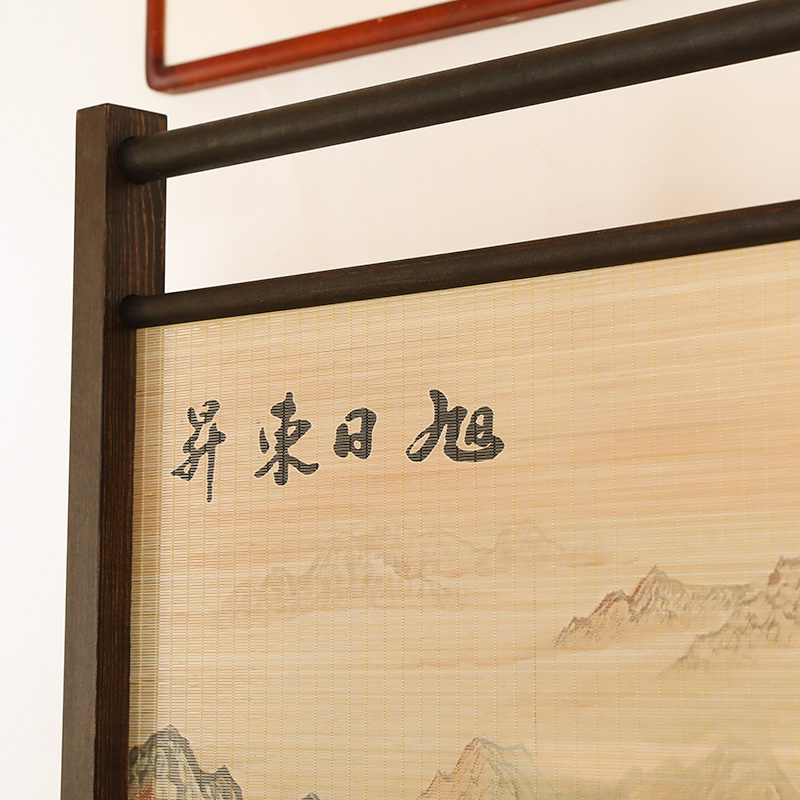 旭日東昇